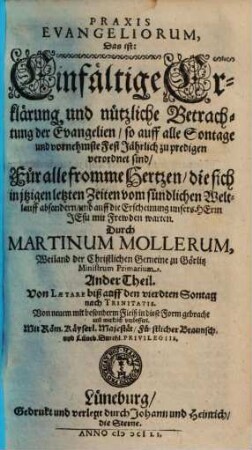 PRAXIS
EVANGELIORUM,
Das ist:
Einfältige Er-
klärung und nützliche Betrach-
tung der Evangelien / so auff alle Sontage
und vornemste Fest Jährlich zu predigen
verordnet sind /
Für alle fromme Hertzen / die sich
in jtzigen letzten Zeiten vom sündlichen Welt-
lauff absondern und auff die Erscheinung unsers HErrn
JEsu mit Frewden warten.
Durch
MARTINUM MOLLERUM,
Weiland der Christlichen Gemeine zu Görlitz
Ministrum Primarium.
Ander Theil.
Von LÆTARE biß auff den vierdten Sontag
nach TRINITATIS.
Von neuem mit besonderm Fleiß in diese Form gebracht
Mit Röm. Käyserl. Majestät / Fürstlicher Braunsch.
und Lüneb. PRIVILEGIIS.
Lüneburg /
Gedruckt und verlegt durch Johann und Heinrich /
die Sterne.
ANNO